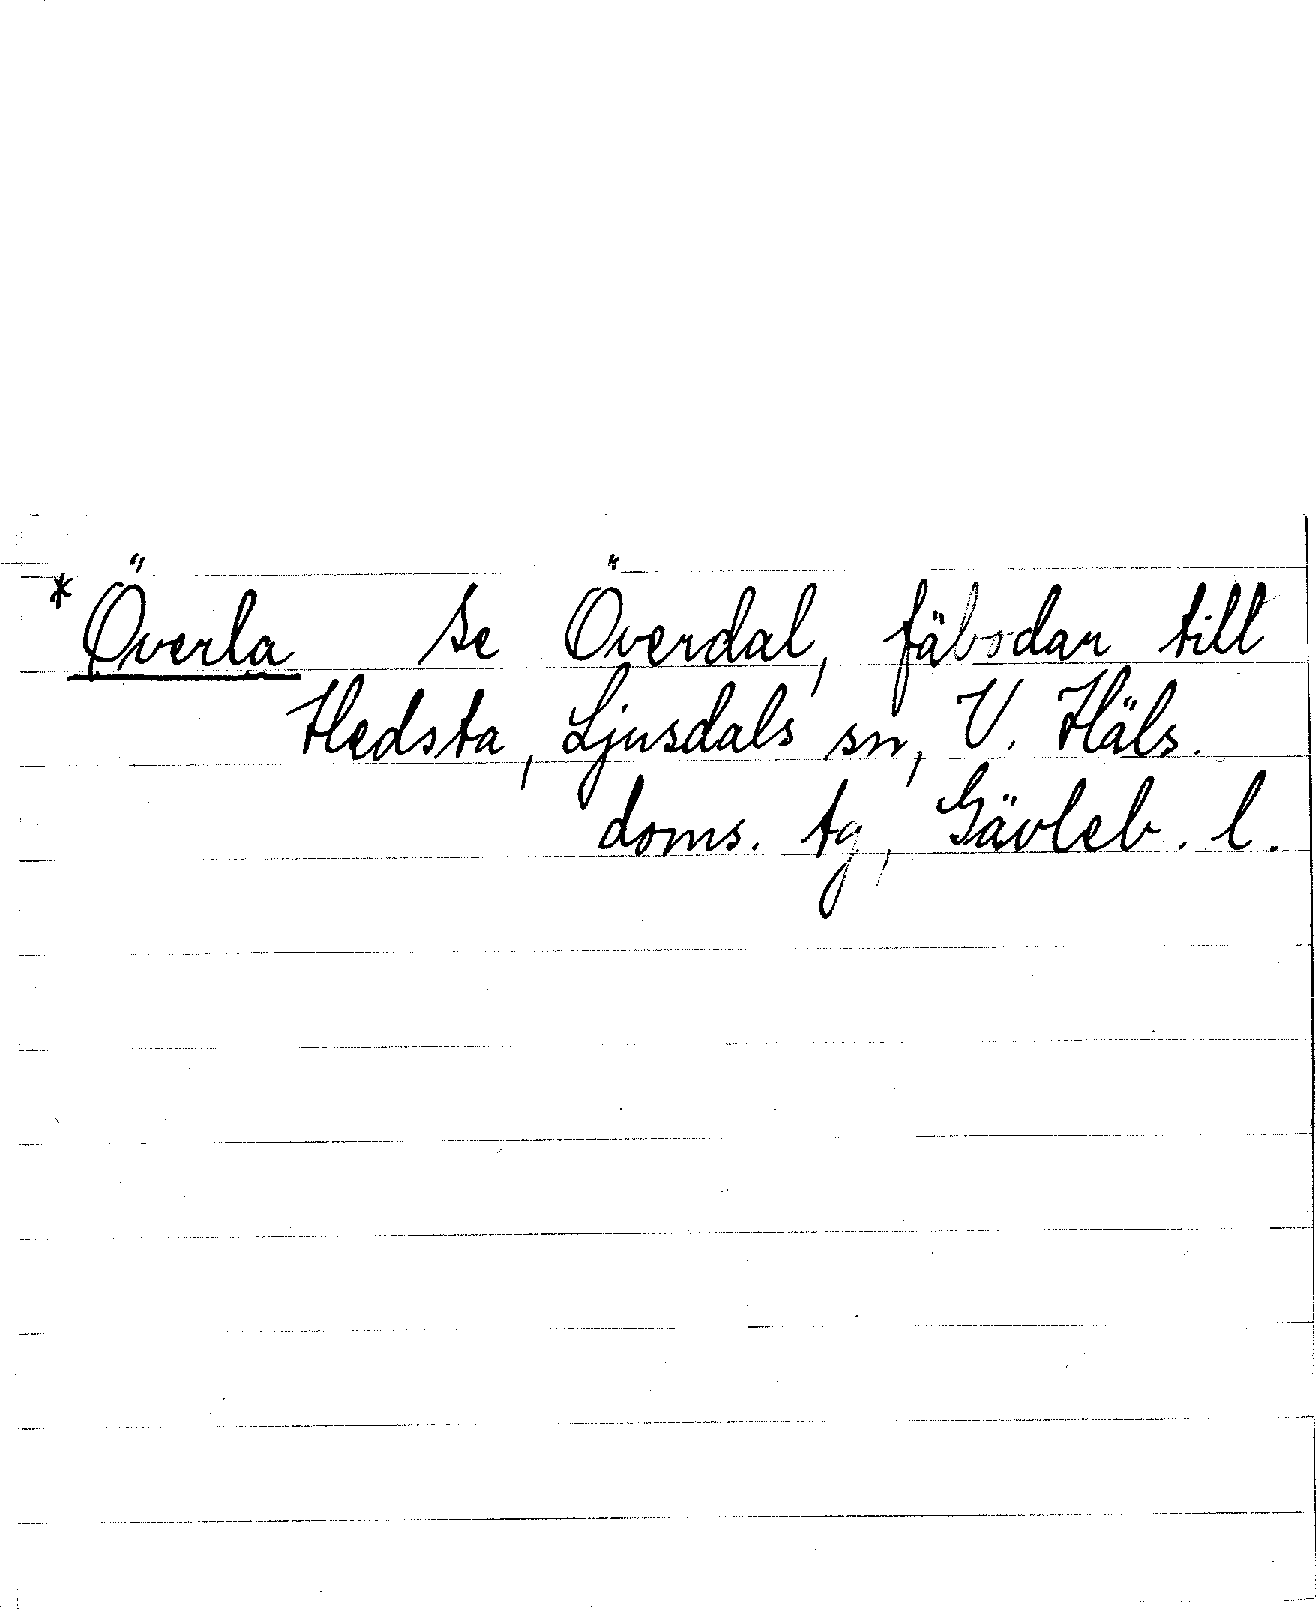 * Överla se Överdal, fäbodar till
Hedsta, Ljusdals sn, V. Häls.
doms. tg, Gävleb. l.